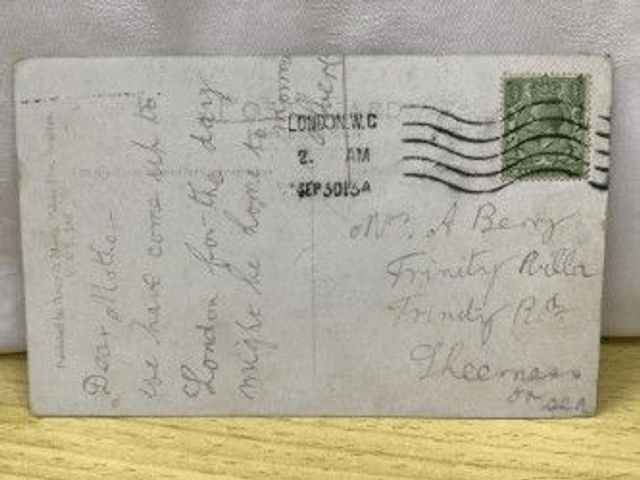 Dear Mother
we have come up to
London for the day
might be home to
morrow
LONDON. W.C
2. AM
SEP 30 13A
Mrs. A Berry
Trinity Villa
Trinity Rd.
Sheerness
on Sea